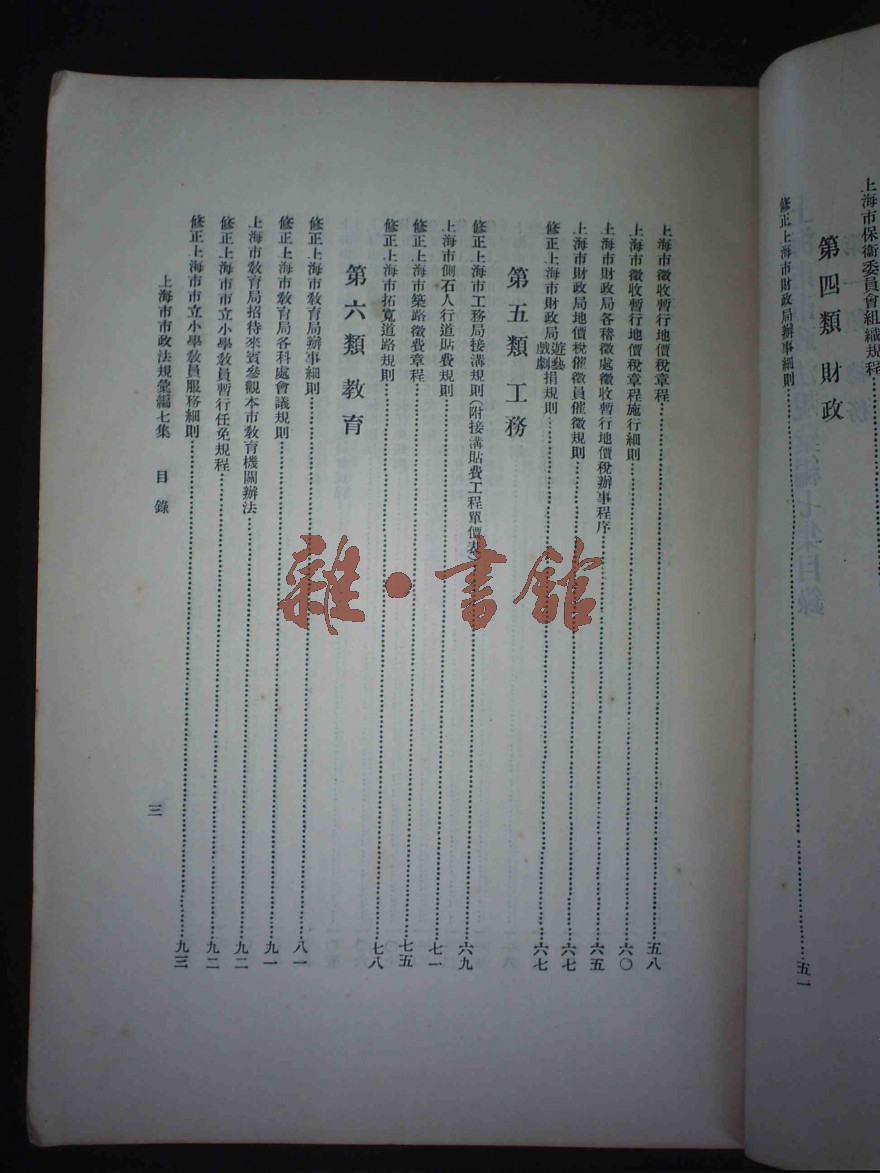 上海市保衛委員會組織規程
第四類 財政
修正上海市財政局辦事細則 五一
上海市徵收暫行地價稅章程 五八
上海市徵收暫行地價稅章程施行細則 六〇
上海市財政局各稽徵處徵收暫行地價稅辦事程序 六五
上海市財政局地價稅催徵員催徵規則 六七
修正上海市財政局遊藝戲劇捐規則 六七
第五類 工務
修正上海市工務局接溝規則(附接溝貼費工程單價表) 六九
上海市側石人行道貼費規則 七一
修正上海市築路徵費章程 七五
修正上海市拓寬道路規則 七八
第六類 教育
修正上海市教育局辦事細則 八一
修正上海市教育局各科處會議規則 九一
上海市教育局招待來賓參觀本市教育機關辦法 九二
修正上海市市立小學教員暫行任免規程 九二
修正上海市市立小學教員服務細則 九三
上海市市政法規彙編七集 目錄
三
雜·書館